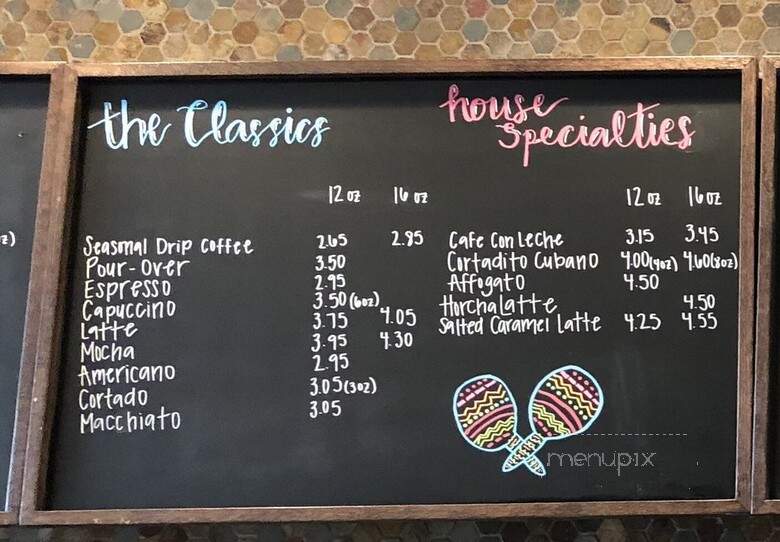 the Classics
12 oz 16 oz
Seasonal Drip Coffee 2.65 2.85
Pour-Over 3.50
Espresso 2.95
Capuccino 3.50 (6oz)
Latte 3.75 4.05
Mocha 3.95 4.30
Americano 2.95
Cortado 3.05 (3oz)
Macchiato 3.05
house
Specialties
12 oz 16 oz
Cafe Con Leche 3.15 3.45
Cortadito Cubano 4.00(4oz) 4.60(8oz)
Affogato 4.50
Horchalatte 4.50
Salted Caramel Latte 4.25 4.55
menupix